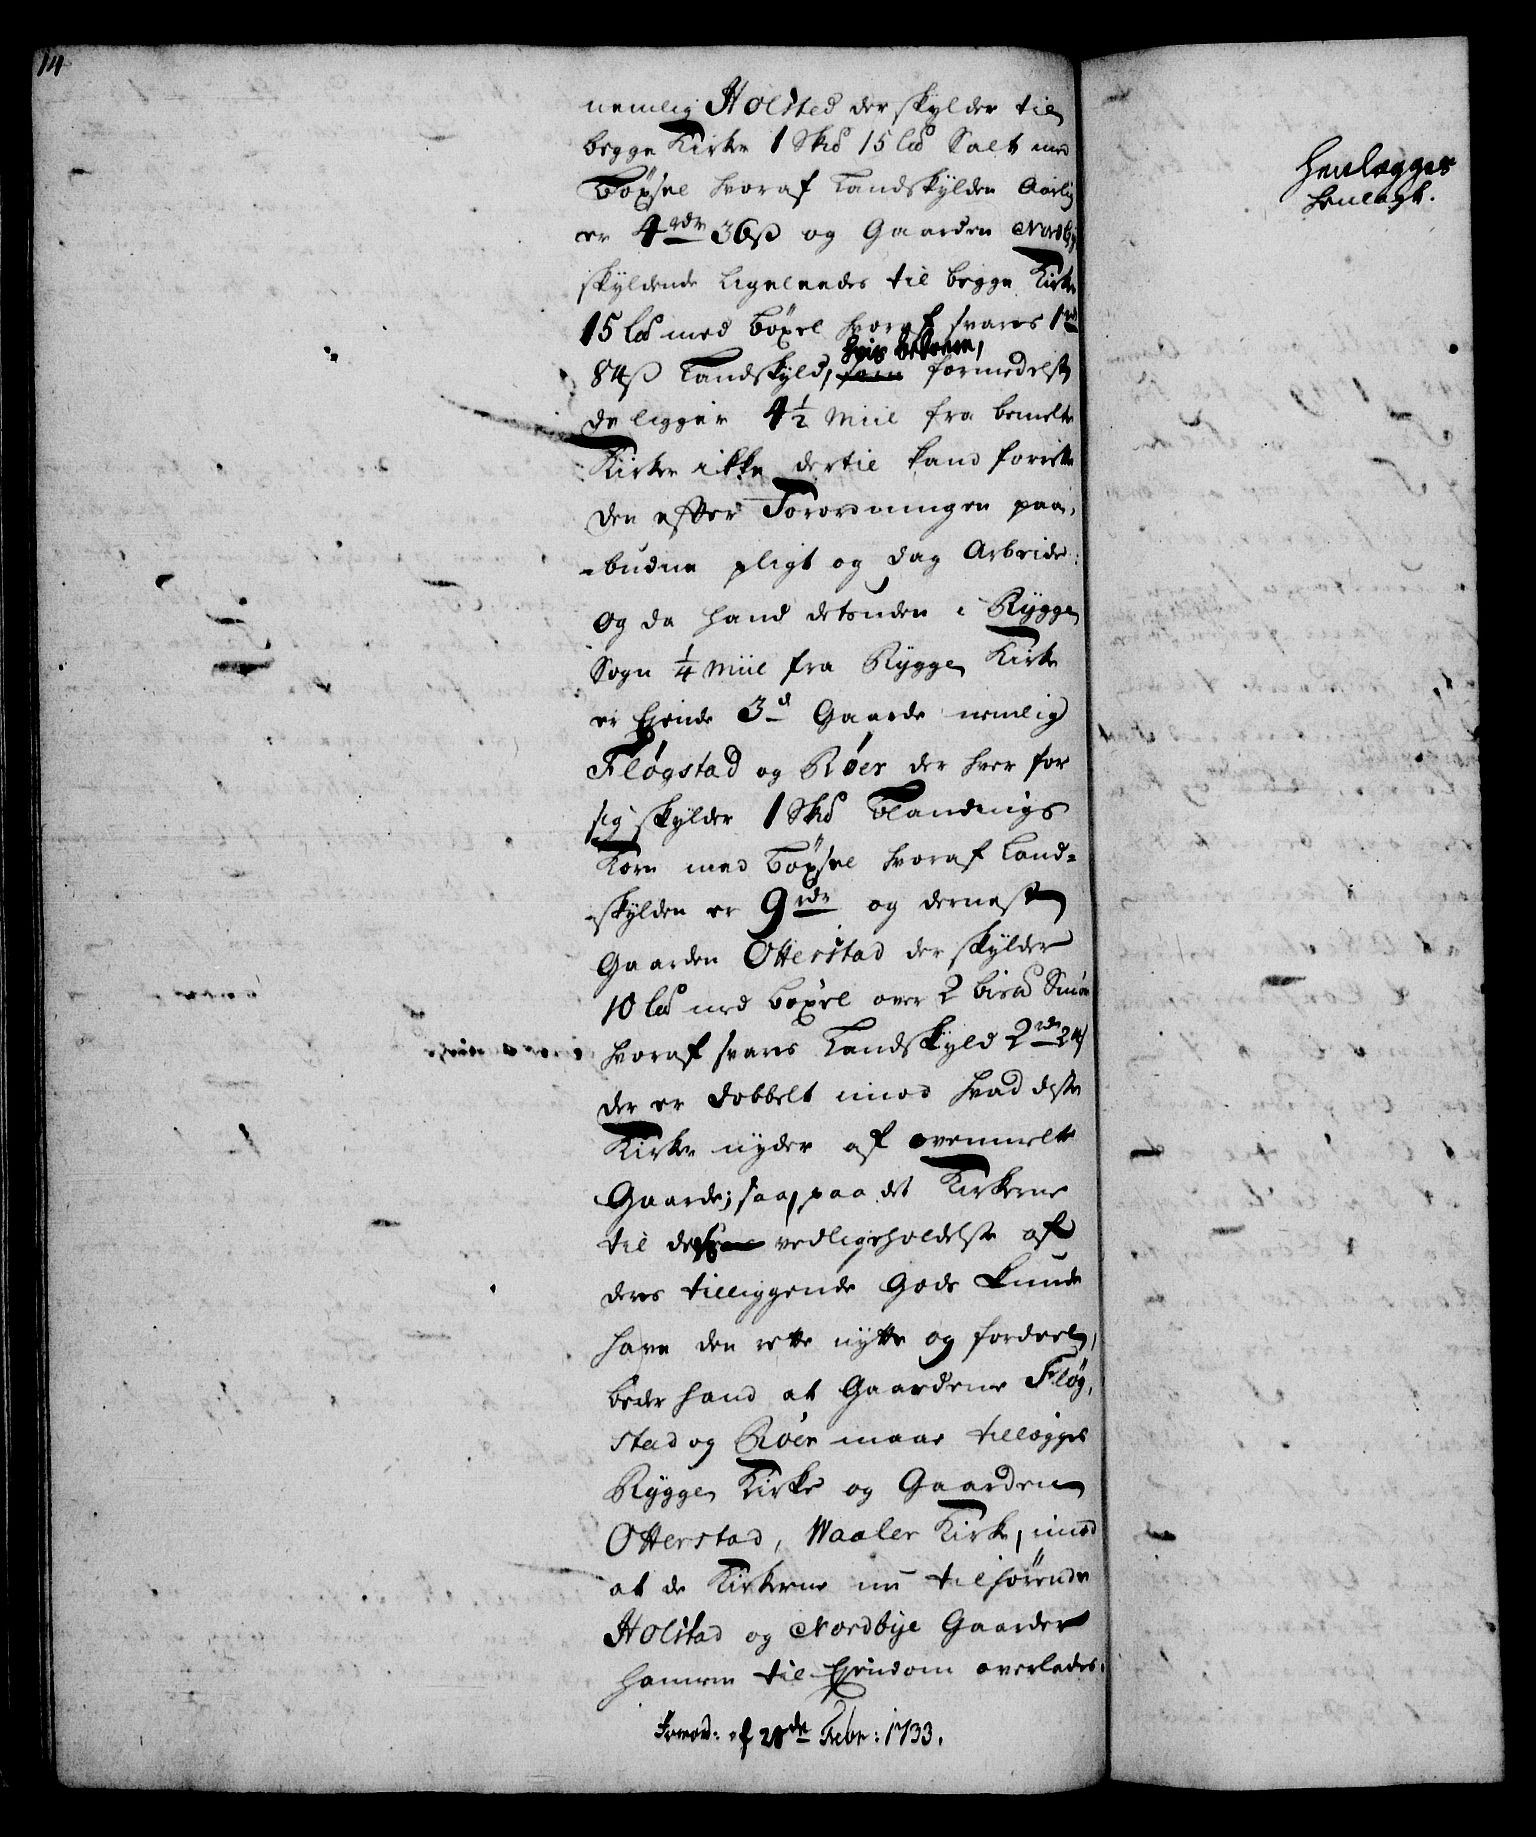 14
nemlig Holsted der skylder til
begge Kirker 1 Skd 15 Ld Salt med
Böxsel hvoraf Landskylden Aarlig
er 4 rdr 36 ß og Gaarden Nordby
skyldende ligeleedes til begge Kirker
15 Ld med böxel hvoraf svares 1 rd
84 ß Landskyld, formedelst
de ligger 4½ Miil fra bemelte
Kirker ikke dertil kand forrette
den efter Forordningen paa-
-budne pligt og dag Arbeide:
Og da hand desuden i Rygge
Sogn ¼ Miil fra Rygge Kirke
er Ejende 3de Gaarde nemlig
Fløgstad og Röer der hver for
sig skylder 1 Skd Blandings
Korn med böxsel hvoraf Land=
-skylden er 9 rdr og dernest
Gaarden Otterstad der skylder
10 Ld med böxel over 2 bisd Smör
hvoraf svares Landskyld 2 rdr 24 ß
der er dobbelt imod hvad disse
Kirker nyder af ovenmelte
Gaarde; saa, paa det Kirkerne
til vedligeholdelse af
deres tilliggende Gods kunde
have den rette nytte og fordeel,
beder hand at Gaardene Fløg,
stad og Röer maae tillægges
Rygge Kirke og Gaarden
Otterstad, Waaler Kirke, imod
at de Kirkerne nu tilhørende
Holstad og Nordbye Gaarder
hannem til Ejendom overlades.
Forord: af 28de Febr: 1733.
Henlægges
henlagt.